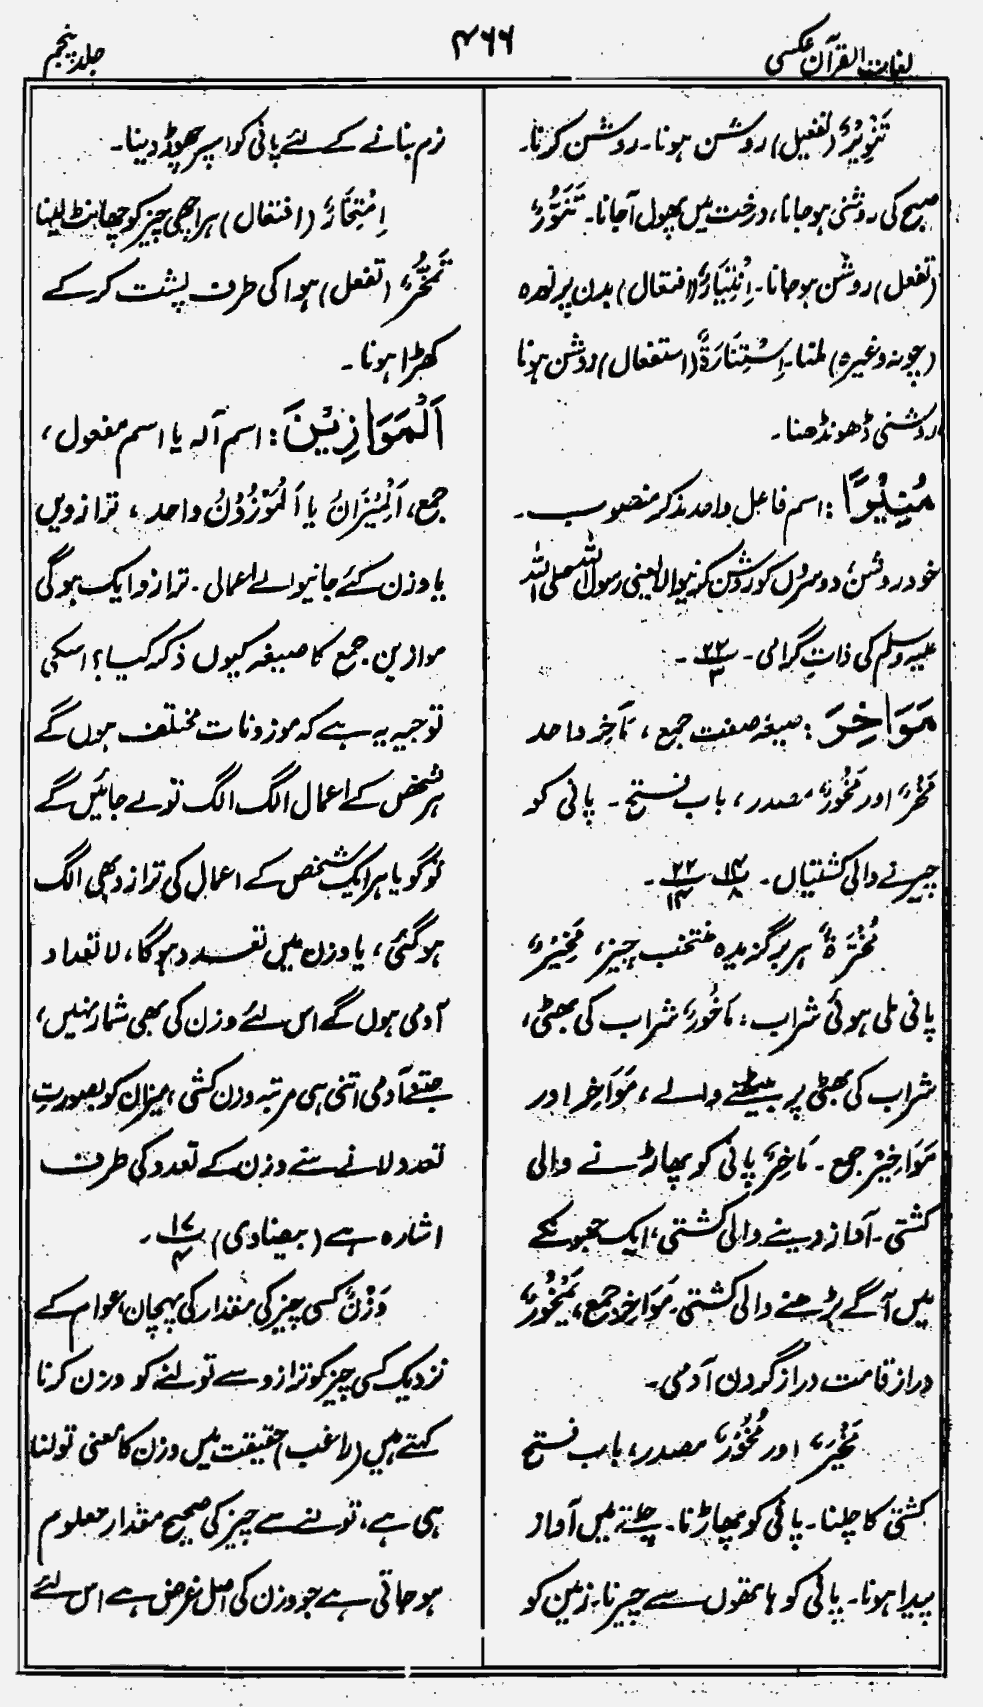 لغات القرآن عکسی
۴۶۶
جلد پنجم
تَنْوِیْرٌ (تفعیل) روشن ہونا۔ روشن کرنا۔
صبح کی روشنی ہو جانا، درخت میں پھول آجانا۔ تَنَوُّرٌ
(تفعل) روشن ہو جانا۔ اِنْتِیَارٌ (افتعال) بدن پر نورہ
(چونہ وغیرہ) لمنا۔ اِسْتِنَارَۃٌ (استفعال) روشن ہونا
روشنی ڈھونڈھنا۔
مُنِیْرًا: اسم فاعل واحد مذکر منصوب۔
خود روشن، دوسروں کو روشن کرنیوالا یعنی رسول اللہ صلی اللہ
علیہ وسلم کی ذاتِ گرامی۔ ۲۲/۳۔
مَوَاخِرَ: صیغہ صفت جمع، مَاخِر واحد
مَخْرٌ اور مَخُوْرٌ مصدر، باب فتح۔ پانی کو
چیرنے والی کشتیاں۔ ۱۴/۸ ۲۲/۱۴۔
مُخْرَۃٌ ہر برگزیدہ منتخب چیز، مَخِیْرٌ
پانی ملی ہوئی شراب: مَاخُورٌ شراب کی بھٹی،
شراب کی بھٹی پر بیٹھنے والے، مَوَاخِر اور
مَوَاخِیْر جمع۔ مَاخِرٌ پانی کو پھاڑنے والی
کشتی۔ آواز دینے والی کشتی، ایک جھونکے
میں آگے بڑھنے والی کشتی۔ مَوَاخِر جمع، یَمْخُوْرٌ
دراز قامت دراز گردن آدمی۔
مَخْرٌ اور مُخُوْرٌ مصدر، باب فتح
کشتی کا چلنا۔ پانی کو پھاڑنا۔ چلتے میں آواز
پیدا ہونا۔ پانی کو ہاتھوں سے چیرنا۔ زمین کو
نرم بنانے کے لئے پانی کو اس پر چھوڑ دینا۔
اِمْتِخَارٌ (افتعال) ہر اچھی چیز کو چھانٹ لینا
تَمَخُّرٌ (تفعل) ہوا کی طرف پشت کر کے
کھڑا ہونا۔
اَلْمَوَازِیْنَ: اسم آلہ یا اسم مفعول،
جمع، اَلْمِیْزَانُ یا اَلْمَوْزُوْنُ واحد، ترازویں
یا وزن کئے جانیوالے اعمال۔ ترازو ایک ہوگی
موازین جمع کا صیغہ کیوں ذکر کیا؟ اسکی
توجیہ یہ ہے کہ موزونات مختلف ہوں گے
ہر شخص کے اعمال الگ الگ تولے جائیں گے
تو گویا ہر ایک شخص کے اعمال کی ترازو بھی الگ
ہو گئی، یا وزن میں تعدد ہوگا، لا تعداد
آدمی ہوں گے اس لئے وزن کی بھی شمار نہیں،
جتنے آدمی اتنی ہی مرتبہ وزن کشی، میزان کو بصورتِ
تعدد لانے سے وزن کے تعدد کی طرف
اشارہ ہے (بیضاوی) ۱۷/۴۔
وَزْنٌ کسی چیز کی مقدار کی پہچان، عوام کے
نزدیک کسی چیز کو ترازو سے تولنے کو وزن کرنا
کہتے ہیں (راغب) حقیقت میں وزن کا معنی تولنا
ہی ہے، تولنے سے چیز کی صحیح مقدار معلوم
ہو جاتی ہے جو وزن کی اصل غرض ہے اس لئے